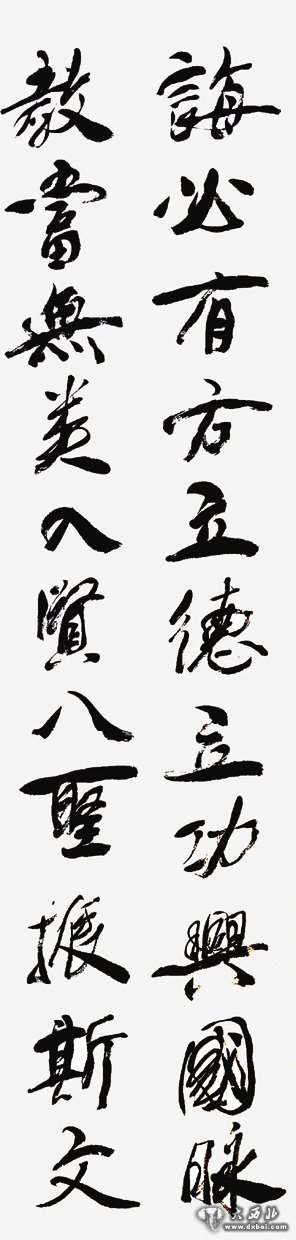 誨必有方立德立功興國脈
教當無类入賢入聖振斯文
大西北
www.dxbei.com